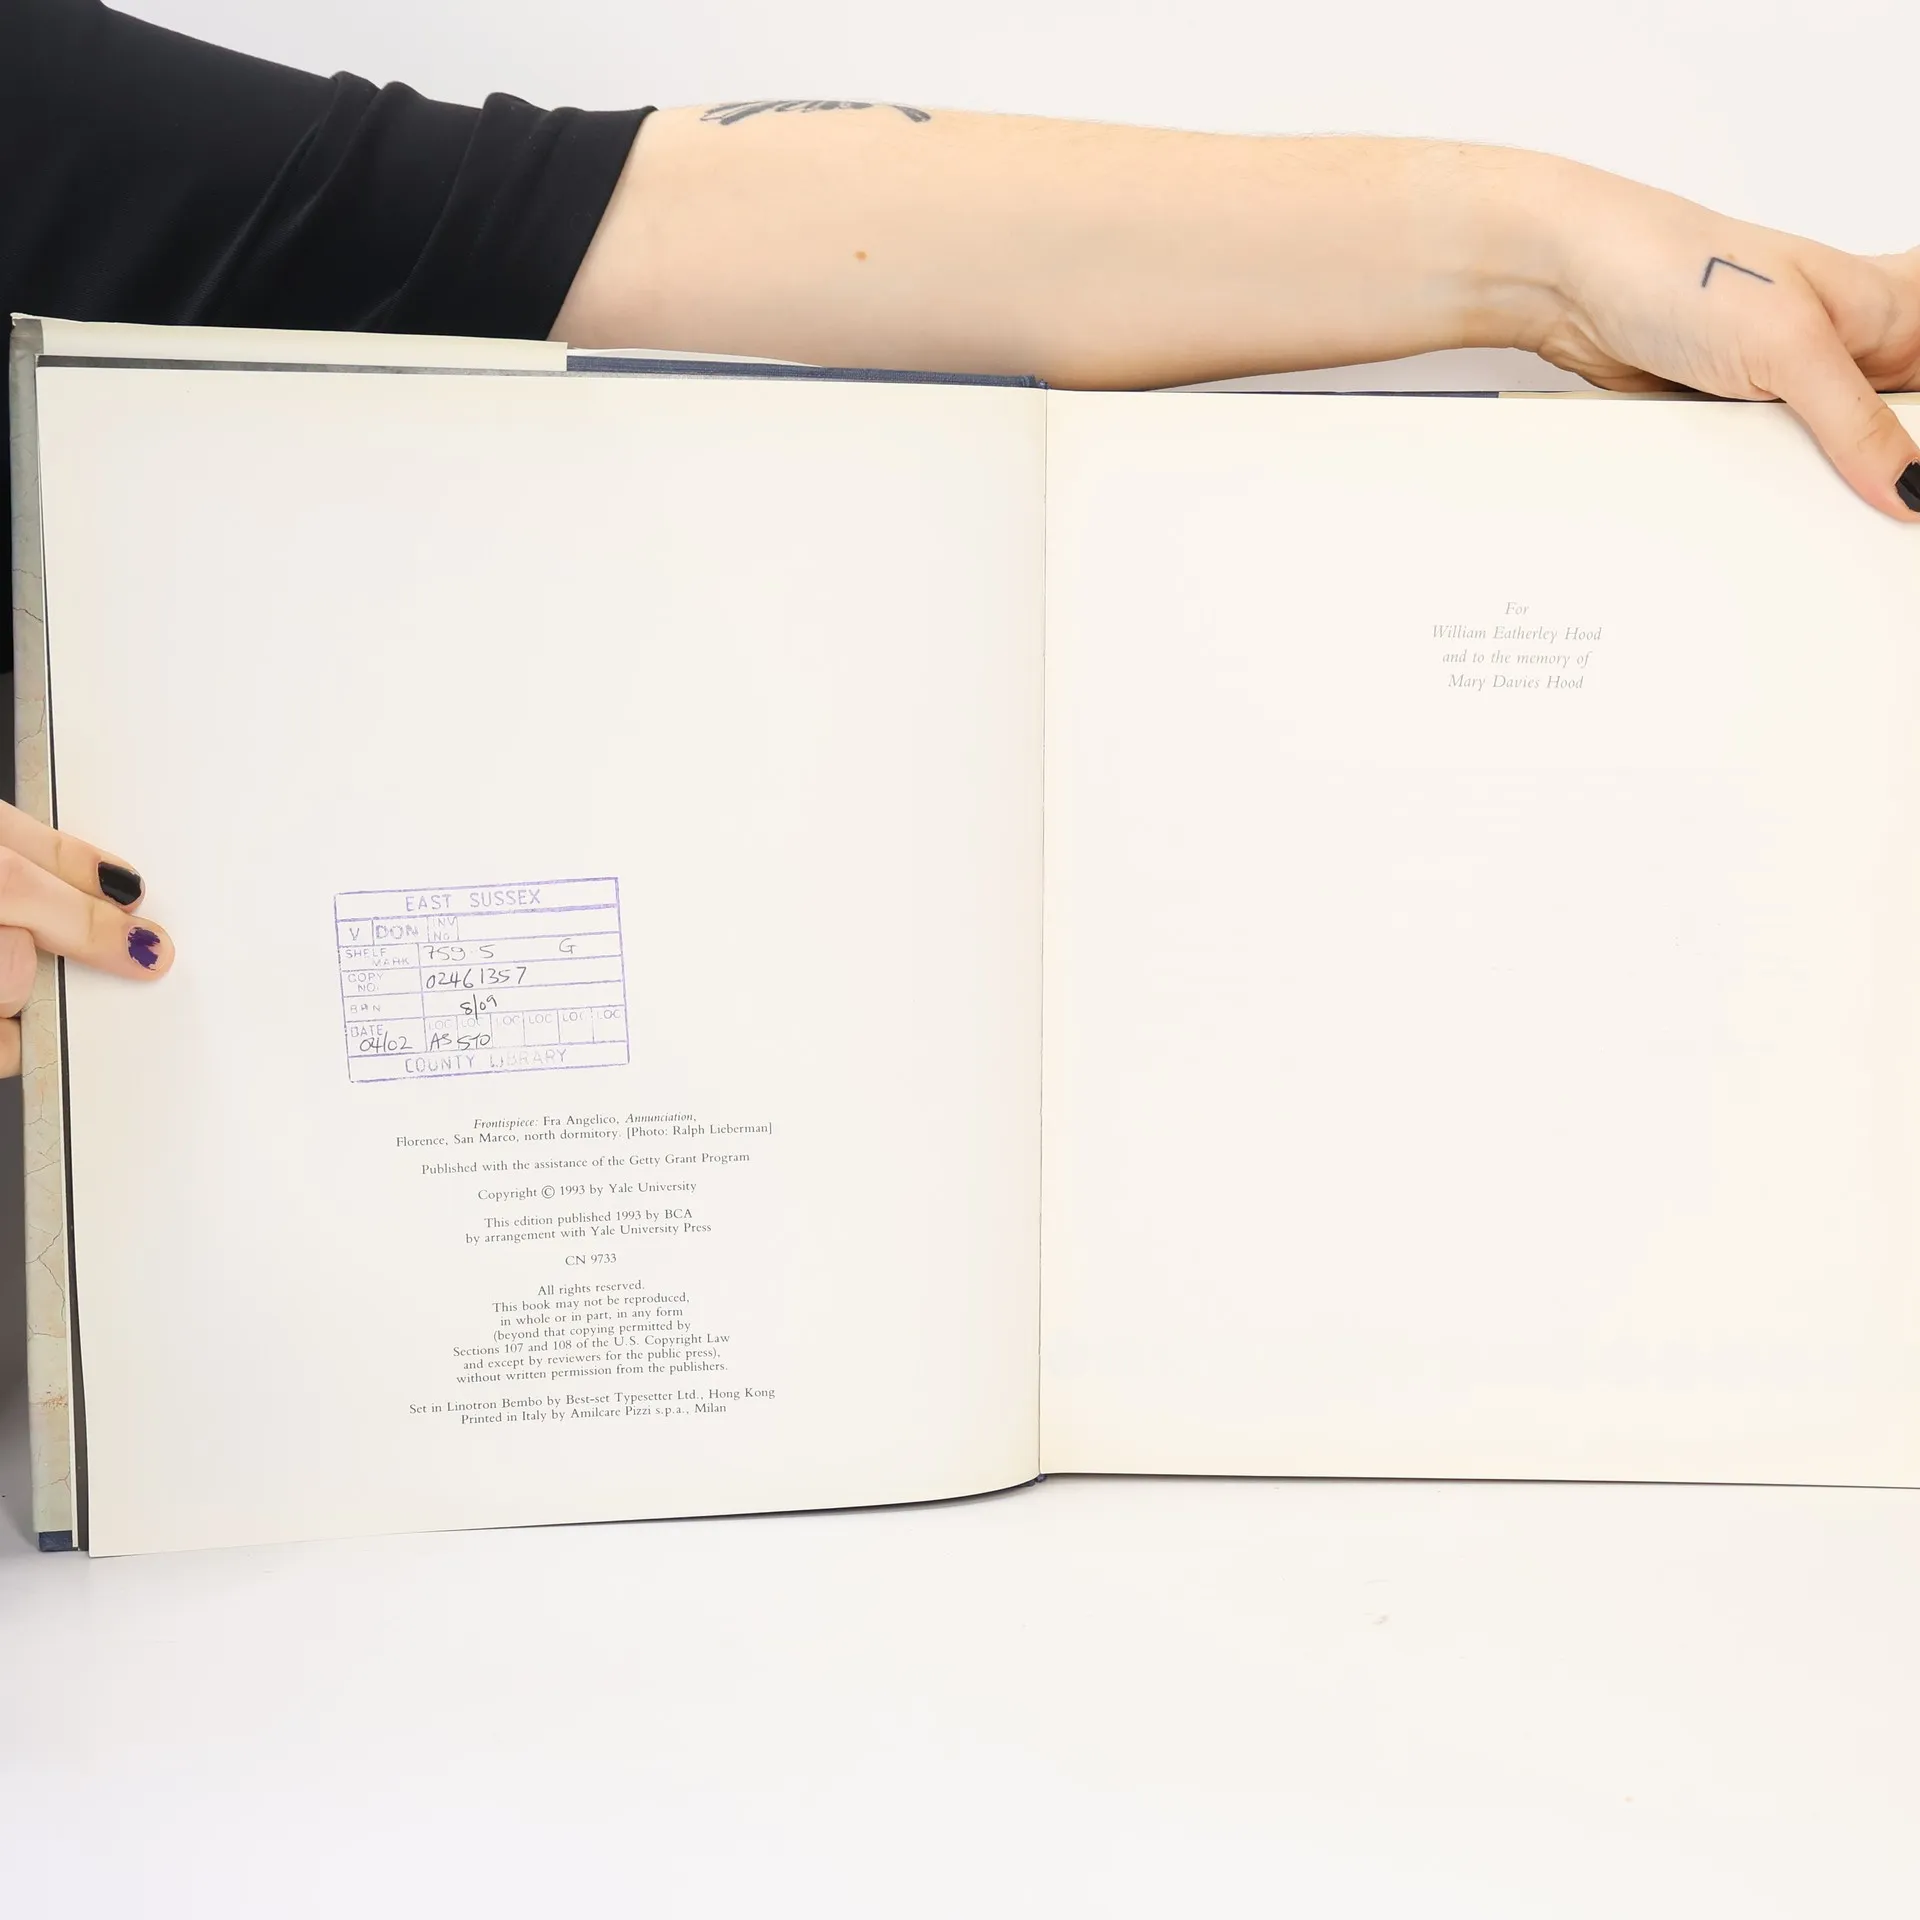 EAST SUSSEX
V DON INV No
SHELF MARK 759.5 G
COPY NO. 02461357
BRN 8/09
DATE 04/02 LOC LOC LOC LOC LOC LOC
AS STO
COUNTY LIBRARY
Frontispiece: Fra Angelico, Annunciation,
Florence, San Marco, north dormitory. [Photo: Ralph Lieberman]
Published with the assistance of the Getty Grant Program
Copyright © 1993 by Yale University
This edition published 1993 by BCA
by arrangement with Yale University Press
CN 9733
All rights reserved.
This book may not be reproduced,
in whole or in part, in any form
(beyond that copying permitted by
Sections 107 and 108 of the U.S. Copyright Law
and except by reviewers for the public press),
without written permission from the publishers.
Set in Linotron Bembo by Best-set Typesetter Ltd., Hong Kong
Printed in Italy by Amilcare Pizzi s.p.a., Milan
For
William Eatherley Hood
and to the memory of
Mary Davies Hood